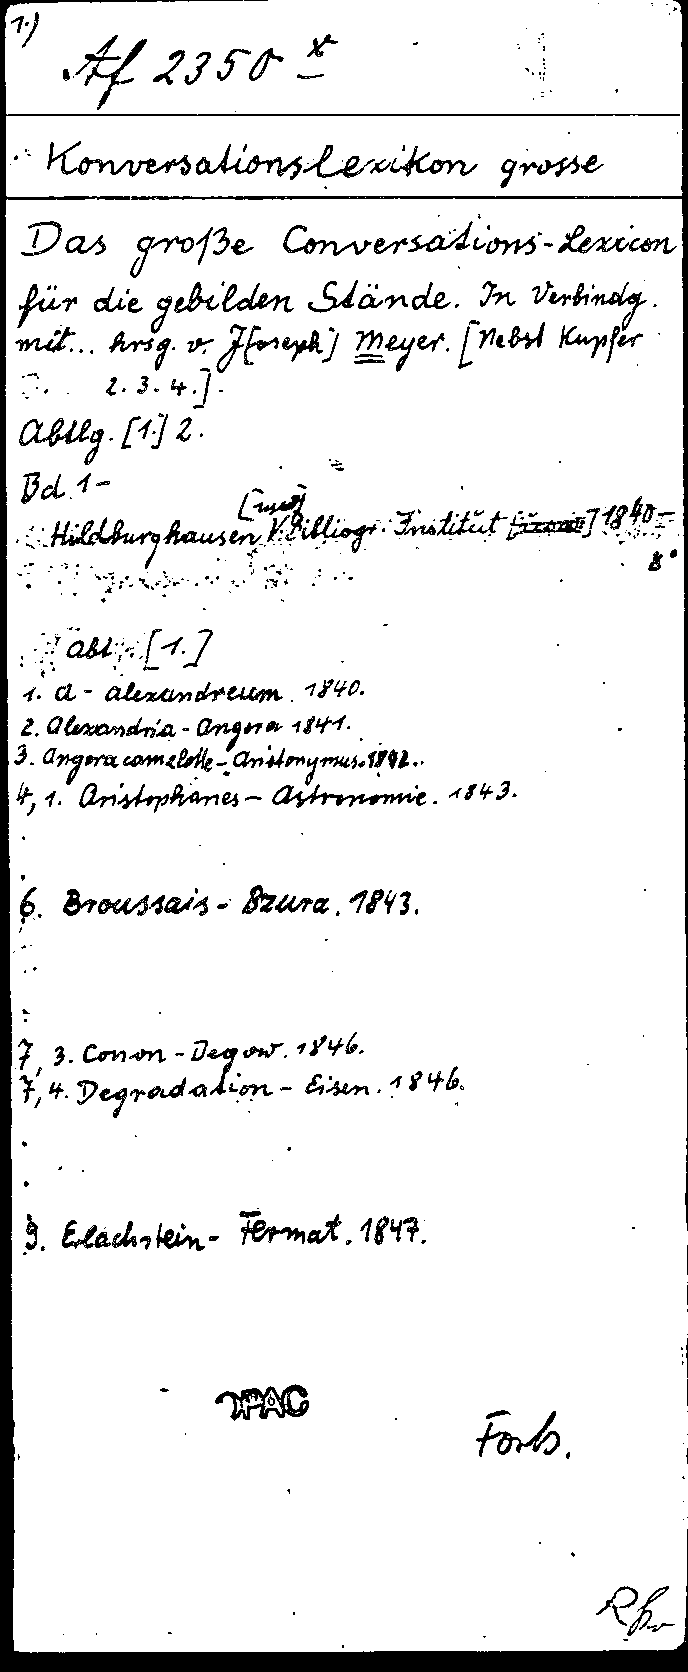 1.)
Af 2350 x
Konversationslexikon grosse
Das große Conversations-Lexicon
für die gebilden Stände. In Verbindg.
mit... hrsg. v. J[oseph] Meyer. [Nebst Kupfer
2. 3. 4.].
Abtlg. [1.] 2.
Bd. 1-
Hildburghausen, Bibliogr. Institut 1840-
8°
Abt. [1.]
1. A - Alexandreum. 1840.
2. Alexandria - Angora 1841.
3. Angoracamelotte - Aristonymus. 1842.
4, 1. Aristophanes - Astronomie. 1843.
6. Broussais - Bzura. 1843.
7, 3. Conon - Degow. 1846.
7, 4. Degradation - Eisen. 1846.
9. Erlachstein - Fermat. 1847.
OPAC
Forts.